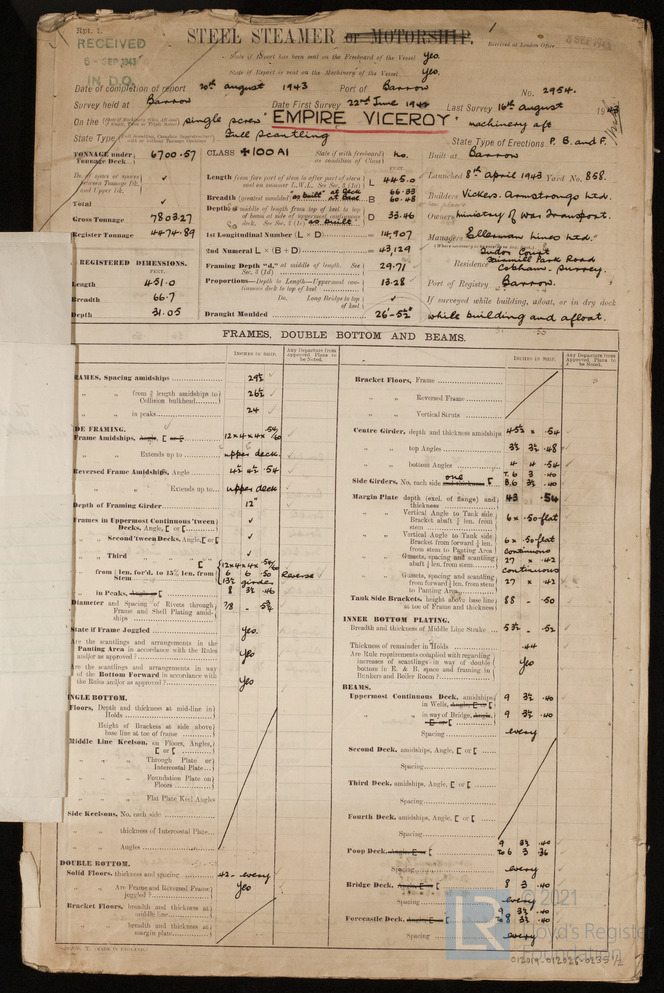 Rpt. 1.
RECEIVED
6 - SEP 1943
IN D.O.
STEEL STEAMER or MOTORSHIP.
Received at London Office
3 SEP 1943
State if Report has been sent on the Freeboard of the Vessel Yes.
State if Report is sent on the Machinery of the Vessel Yes.
Date of completion of report 20th August 1943 Port of Barrow No. 2954.
Survey held at Barrow Date First Survey 22nd June 194 Last Survey 16th August 1943
On the single screw "EMPIRE VICEROY" machinery aft
State Type Full Scantling State Type of Erections P. B. and F.
TONNAGE under Tonnage Deck 6700.57
CLASS +100A1 State if with freeboard as condition of Class no.
Built at Barrow
Launched 8th April 1943 Yard No. 858.
Builders Vickers-Armstrongs Ltd.
Owners Ministry of War Transport.
Managers Ellerman Lines Ltd.
Residence Tudor Court Fairmile Park Road Cobham. Surrey.
Port of Registry Barrow.
If surveyed while building, afloat, or in dry dock
while building and afloat.
Total
Gross Tonnage 7803.27
Register Tonnage 4474.89
REGISTERED DIMENSIONS.
FEET.
Length 451.0
Breadth 66.7
Depth 31.05
Length from fore part of stem to after part of stern L 445.0
Breadth (greatest moulded) "as built" at deck 66.33
at base B 60.48
Depth, at middle of length from top of keel to top of beam at side of uppermost continuous deck "as built" D 33.46
1st Longitudinal Number (L × D) = 14,907
2nd Numeral L × (B + D) = 43,129
Framing Depth "d," at middle of length. See Sec. 3 (1d) 29.71
Proportions—Depth to Length—Uppermost continuous deck to top of keel 13.28
Do. Long Bridge to top of keel
Draught Moulded 26'-5½"
FRAMES, DOUBLE BOTTOM AND BEAMS.
INCHES IN SHIP. Any Departure from Approved Plans to be Noted.
FRAMES, Spacing amidships 29½
from ⅗ length amidships to Collision bulkhead 26½
in peaks 24
SIDE FRAMING.
Frame Amidships, Angle, [ or [ 12 x 4 x 4 x .54/60
Extends up to upper deck
Reversed Frame Amidships, Angle 4½ 4½ .54
Extends up to upper deck
Depth of Framing Girder 12"
Frames in Uppermost Continuous 'tween Decks, Angle, [ or [
Second 'tween Decks, Angle, [ or [
Third
from ⅗ len. for'd. to 15% len. from Stem 12 x 4 x 4 x .54/60
6 6 .50 Reverse
13½ girder
in Peaks, Angle or [ 8 3½ .46
Diameter and Spacing of Rivets through Frame and Shell Plating amidships 7/8 - 5¾
State if Frame Joggled yes.
Are the scantlings and arrangements in the Panting Area in accordance with the Rules and/or as approved? yes
Are the scantlings and arrangements in way of the Bottom Forward in accordance with the Rules and/or as approved? yes
SINGLE BOTTOM.
Floors, Depth and thickness at mid-line in Holds
Height of Brackets at side above base line at toe of frame
Middle Line Keelson, on Floors, Angles, [ or [
Through Plate or Intercostal Plate
Foundation Plate on Floors
Flat Plate Keel Angles
Side Keelsons, No. each side
thickness of Intercostal Plate
Angles
DOUBLE BOTTOM.
Solid Floors, thickness and spacing .42 - every
Are Frame and Reversed Frame joggled? yes
Bracket Floors, breadth and thickness at middle line
breadth and thickness at margin plate
Bracket Floors, Frame
Reversed Frame
Vertical Struts
Centre Girder, depth and thickness amidships 45½ x .54
top Angles 3½ 3½ .48
bottom Angles 4 4 .54
Side Girders, No. each side one T. 6 3 .40
B. 6 3½ .40
Margin Plate depth (excl. of flange) and thickness 43 .54
Vertical Angle to Tank side Bracket abaft ¼ len. from stem 6 x .50 flat
Vertical Angle to Tank side Bracket from forward ¼ len. from stem to Panting Area 6 x .50 flat
continuous
Gussets, spacing and scantling abaft ¼ len. from stem 27 x .42
continuous
Gussets, spacing and scantling from forward ¼ len. from stem to Panting Area 27 x .42
Tank Side Brackets, height above base line at toe of Frame and thickness 88 - .50
INNER BOTTOM PLATING.
Breadth and thickness of Middle Line Strake 53½ - .52
Thickness of remainder in Holds .44
Are Rule requirements complied with regarding increases of scantlings in way of double bottom in E. & B. space and framing in Bunkers and Boiler Room? yes
BEAMS.
Uppermost Continuous Deck, amidships in Wells, Angle, [ or [ 9 3½ .40
in way of Bridge, Angle, [ or [ 9 3½ .40
Spacing every
Second Deck, amidships, Angle, [ or [
Spacing
Third Deck, amidships, Angle, [ or [
Spacing
Fourth Deck, amidships, Angle, [ or [
Spacing
Poop Deck, Angle, [ or [ 9 3½ .40
to 6 3 .36
Spacing every
Bridge Deck, Angle, [ or [ 8 3 .40
Spacing every
Forecastle Deck, Angle, [ or [ 9 3½ .40
to 8 3½ .40
Spacing every
© 2021
Lloyd's Register
Foundation
012019-012028-0235 1/2